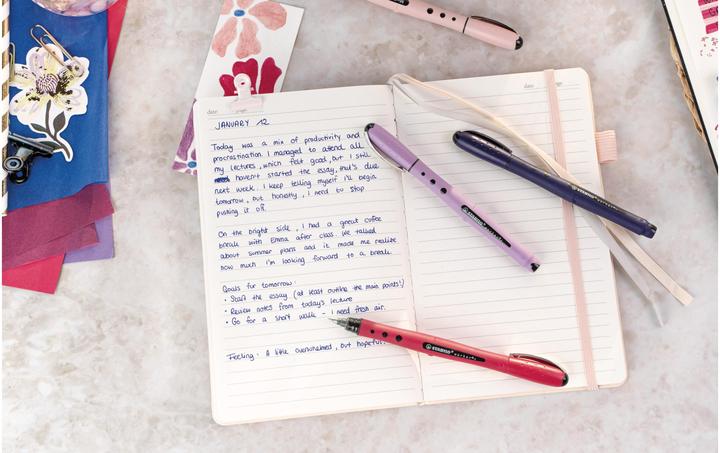 date page
JANUARY 12
Today was a mix of productivity and
procrastination. I managed to attend all
my lectures, which felt good, but I still
haven't started the essay, that's due
next week. I keep telling myself I'll begin
tomorrow, but honestly, I need to stop
pushing it off.
On the bright side, I had a great coffee
break with Emma after class. We talked
about summer plans and it made me realize
how much I'm looking forward to a break.
Goals for tomorrow:
• Start the essay (at least outline the main points!)
• Review notes from today's lecture
• Go for a short walk - I need fresh air.
Feeling: A little overwhelmed, but hopeful.
date
STABILO
STABILO
STABILO